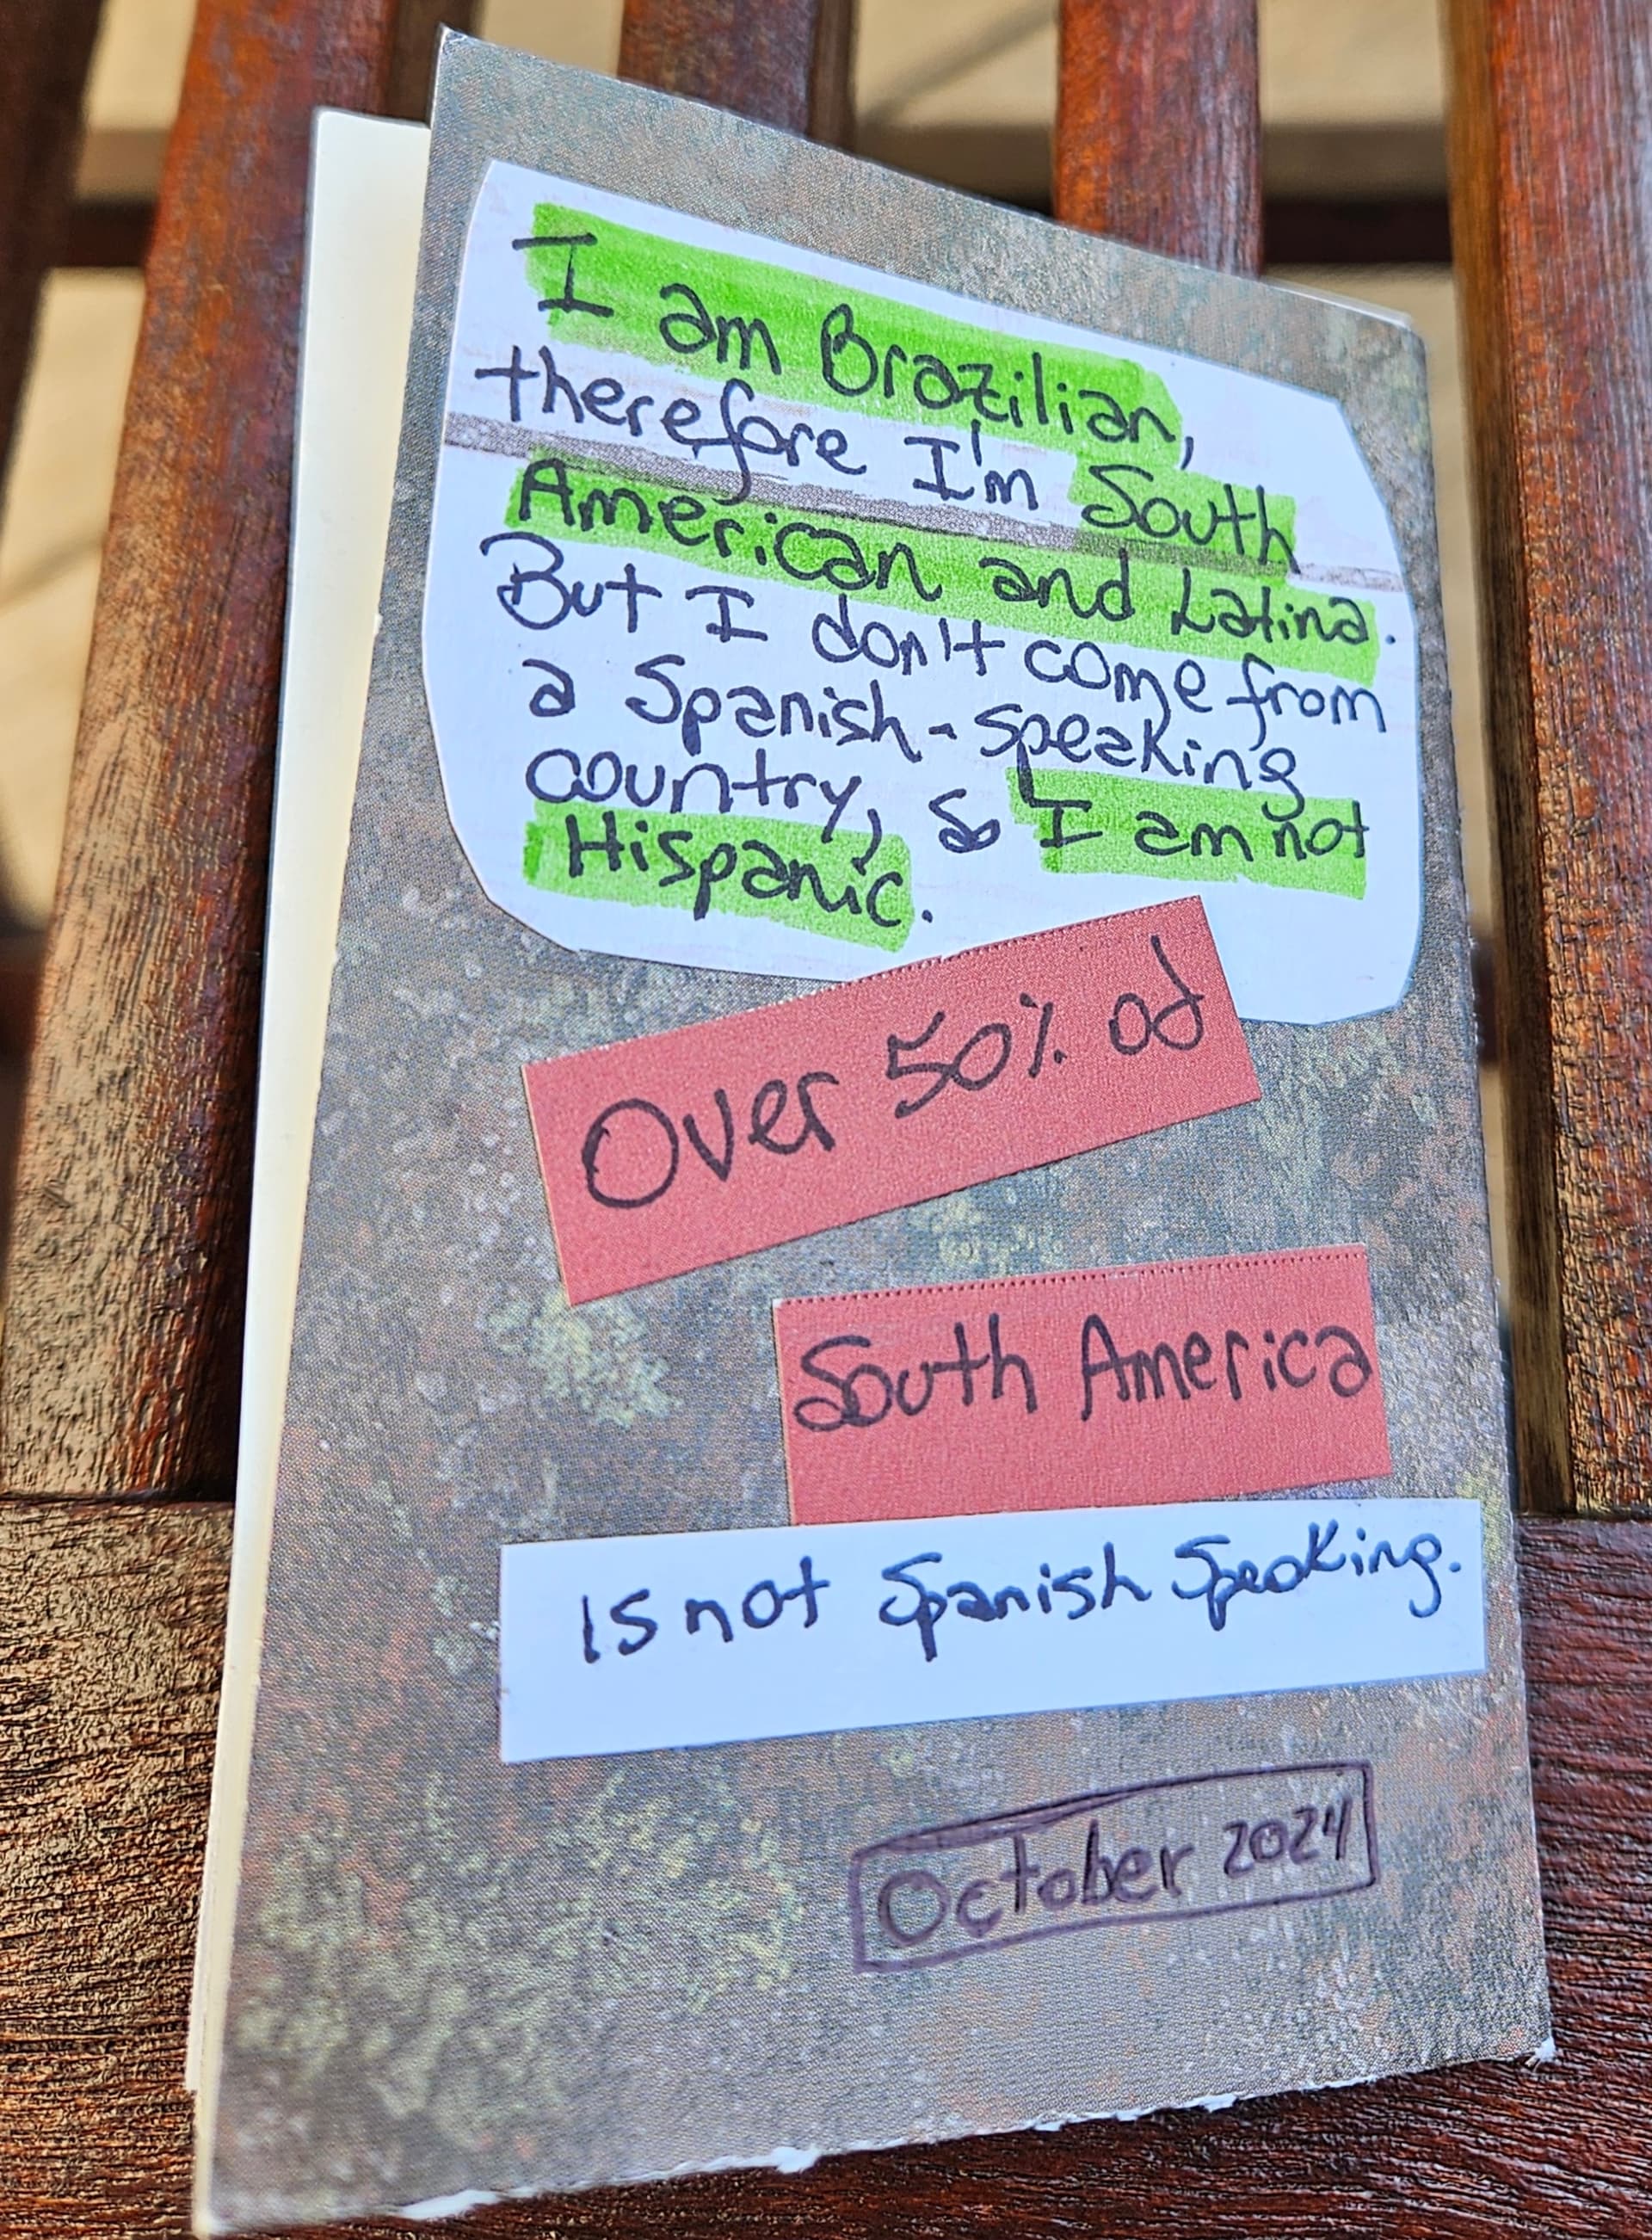 I am Brazilian,
therefore I'm South
American and Latina.
But I don't come from
a Spanish-speaking
country, so I am not
Hispanic.
Over 50% od
South America
is not Spanish Speaking.
October 2024